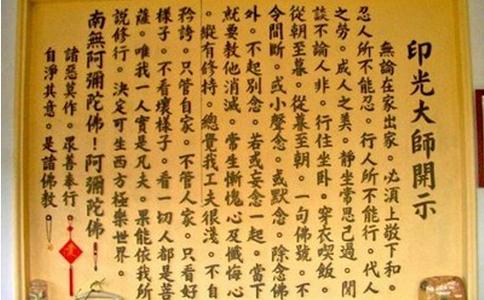 印光大師開示
無論在家出家。必須上敬下和。
忍人所不能忍。行人所不能行。代人
之勞。成人之美。靜坐常思己過。閒
談不論人非。行住坐臥。穿衣喫飯。
從朝至暮。從暮至朝。一句佛號。不
令間斷。或小聲念。或默念。除念佛
外。不起別念。若或妄念一起。當下
就要教他消滅。常生慚愧心及懺悔心
。縱有修持。總覺我工夫很淺。不自
矜誇。只管自家。不管人家。只看好
樣子。不看壞樣子。看一切人都是菩
薩。唯我一人實是凡夫。果能依我所
說修行。決定可生西方極樂世界。
南無阿彌陀佛！阿彌陀佛！
諸惡莫作。眾善奉行。
自淨其意。是諸佛教。